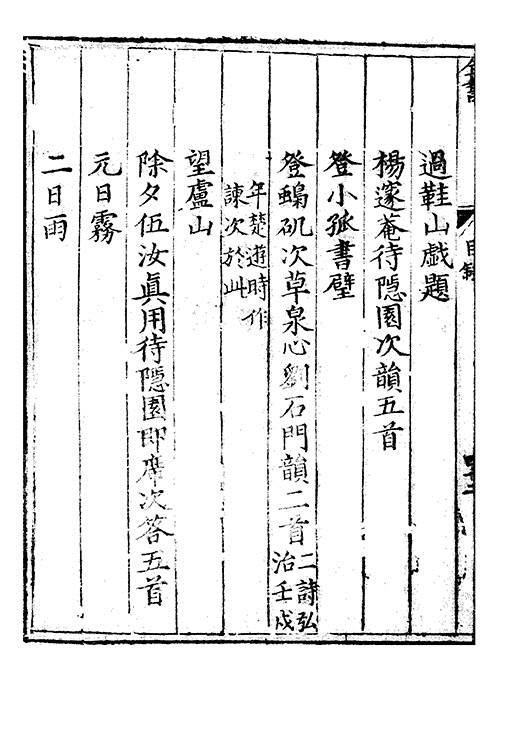 過鞋山戲題
楊邃菴待隱園次韻五首
登小孤書壁
登螭磯次草泉心劉石門韻二首二詩弘治壬戌
年楚遊時作諫次於此
望廬山
除夕伍汝真用待隱園即席次答五首
元日霧
二日雨
目錄